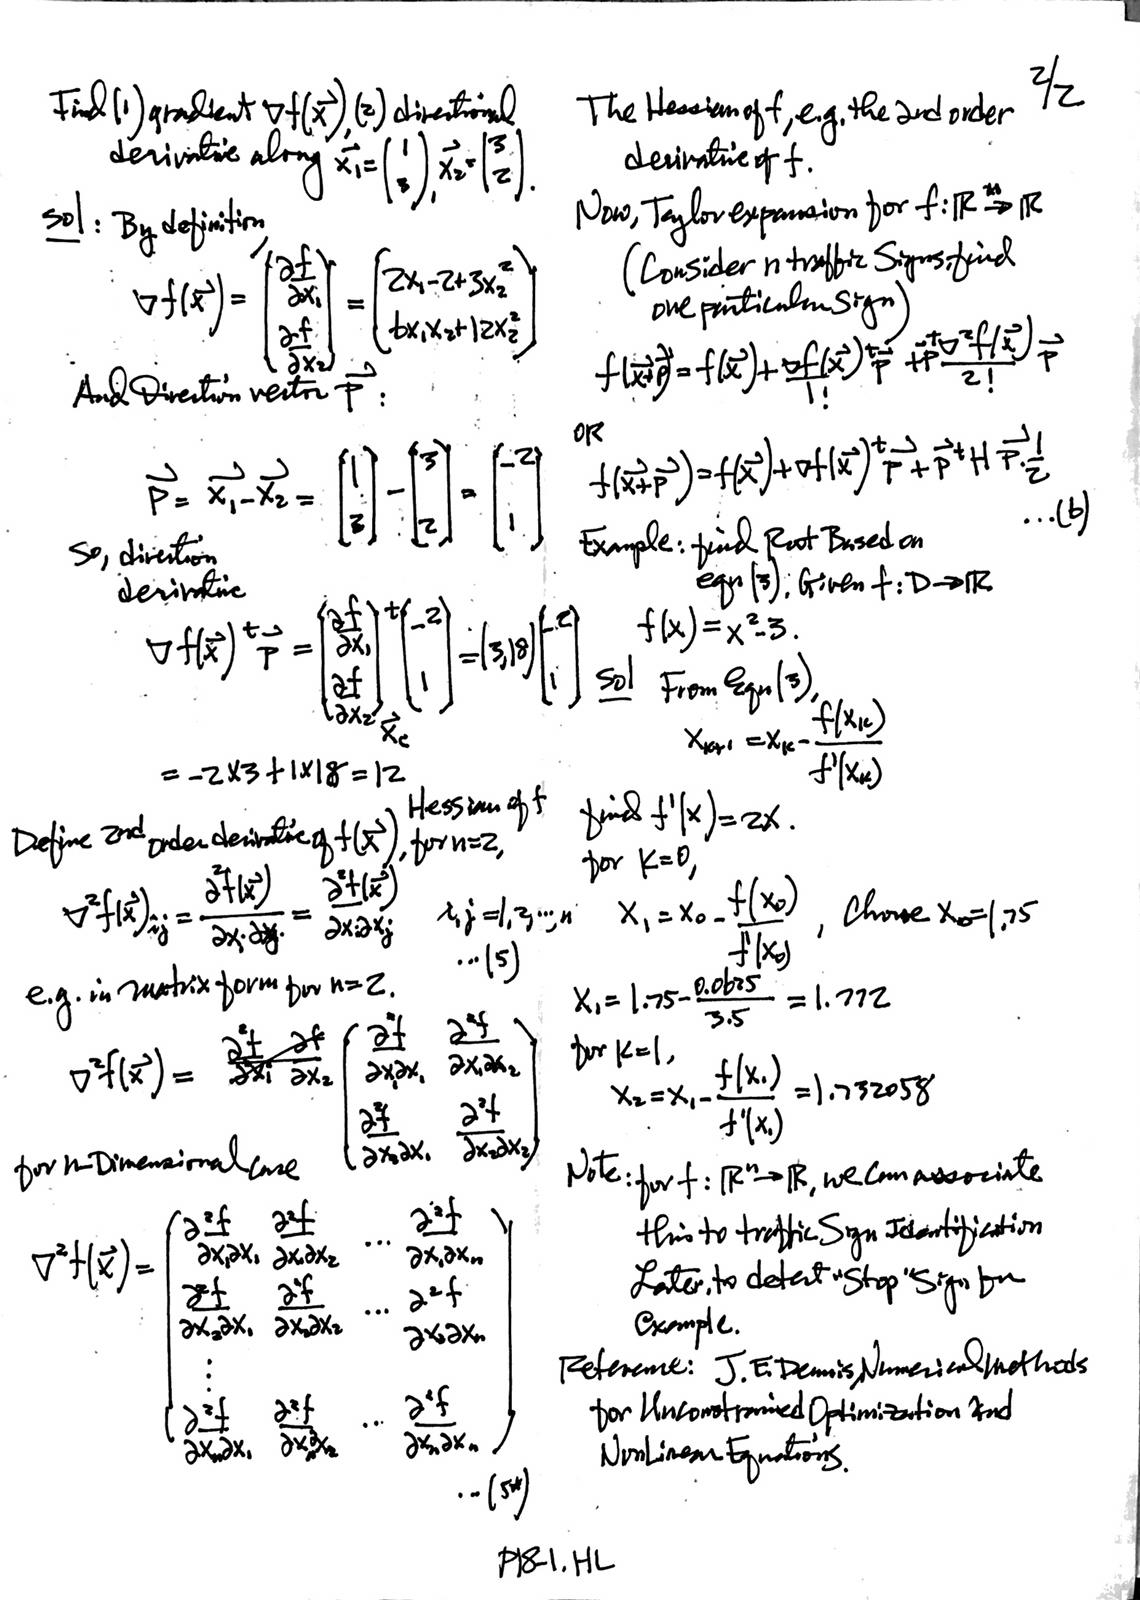 2/2
Find (1) gradient ∇f(x⃗), (2) directional
derivative along x⃗₁ = (1 3), x⃗₂ = (3 2).
Sol: By definition,
∇f(x⃗) = (∂f/∂x₁ ∂f/∂x₂) = (2x₁-2+3x₂² 6x₁x₂+12x₂²)
And Direction vector p⃗ :
p⃗ = x⃗₁ - x⃗₂ = (1 3) - (3 2) = (-2 1)
So, direction
derivative
∇f(x⃗)ᵗ p⃗ = (∂f/∂x₁ ∂f/∂x₂)ᵗ x⃗c (-2 1) = (3,18) (-2 1)
= -2x3 + 1x18 = 12
Define 2nd order derivative of f(x⃗), Hessian of f
for n=2,
∇²f(x⃗)ij = ∂²f(x⃗)/∂xi∂xj = ∂²f(x⃗)/∂xi∂xj i,j = 1,2,…,n
…(5)
e.g. in matrix form for n=2.
∇²f(x⃗) = (∂²f/∂x₁∂x₁ ∂²f/∂x₁∂x₂
∂²f/∂x₂∂x₁ ∂²f/∂x₂∂x₂)
for n-Dimensional case
∇²f(x⃗) = (∂²f/∂x₁∂x₁ ∂²f/∂x₁∂x₂ … ∂²f/∂x₁∂xn
∂²f/∂x₂∂x₁ ∂²f/∂x₂∂x₂ … ∂²f/∂x₂∂xn
⋮
∂²f/∂xn∂x₁ ∂²f/∂xn∂x₂ … ∂²f/∂xn∂xn)
…(5*)
The Hessian of f, e.g. the 2nd order
derivative of f.
Now, Taylor expansion for f: ℝⁿ → ℝ
(Consider n traffic Signs, find
one particular Sign)
f(x⃗+p⃗) = f(x⃗) + ∇f(x⃗)ᵗ/1! p⃗ + p⃗ᵗ ∇²f(x⃗)/2! p⃗
OR
f(x⃗+p⃗) = f(x⃗) + ∇f(x⃗)ᵗ p⃗ + p⃗ᵗ H p⃗ · 1/2
…(6)
Example: find Root Based on
eqn (3), Given f: D → ℝ
f(x) = x²-3.
Sol From Eqn (3),
xk+1 = xk - f(xk)/f'(xk)
find f'(x) = 2x.
for k=0,
x₁ = x₀ - f(x₀)/f'(x₀), Choose x₀ = 1.75
x₁ = 1.75 - 0.0625/3.5 = 1.772
for k=1,
x₂ = x₁ - f(x₁)/f'(x₁) = 1.732058
Note: for f: ℝⁿ → ℝ, we can associate
this to traffic Sign Identification
Later, to detect "Stop" Sign for
Example.
Reference: J. E. Dennis, Numerical Methods
for Unconstrained Optimization and
NonLinear Equations.
P18-1. HL